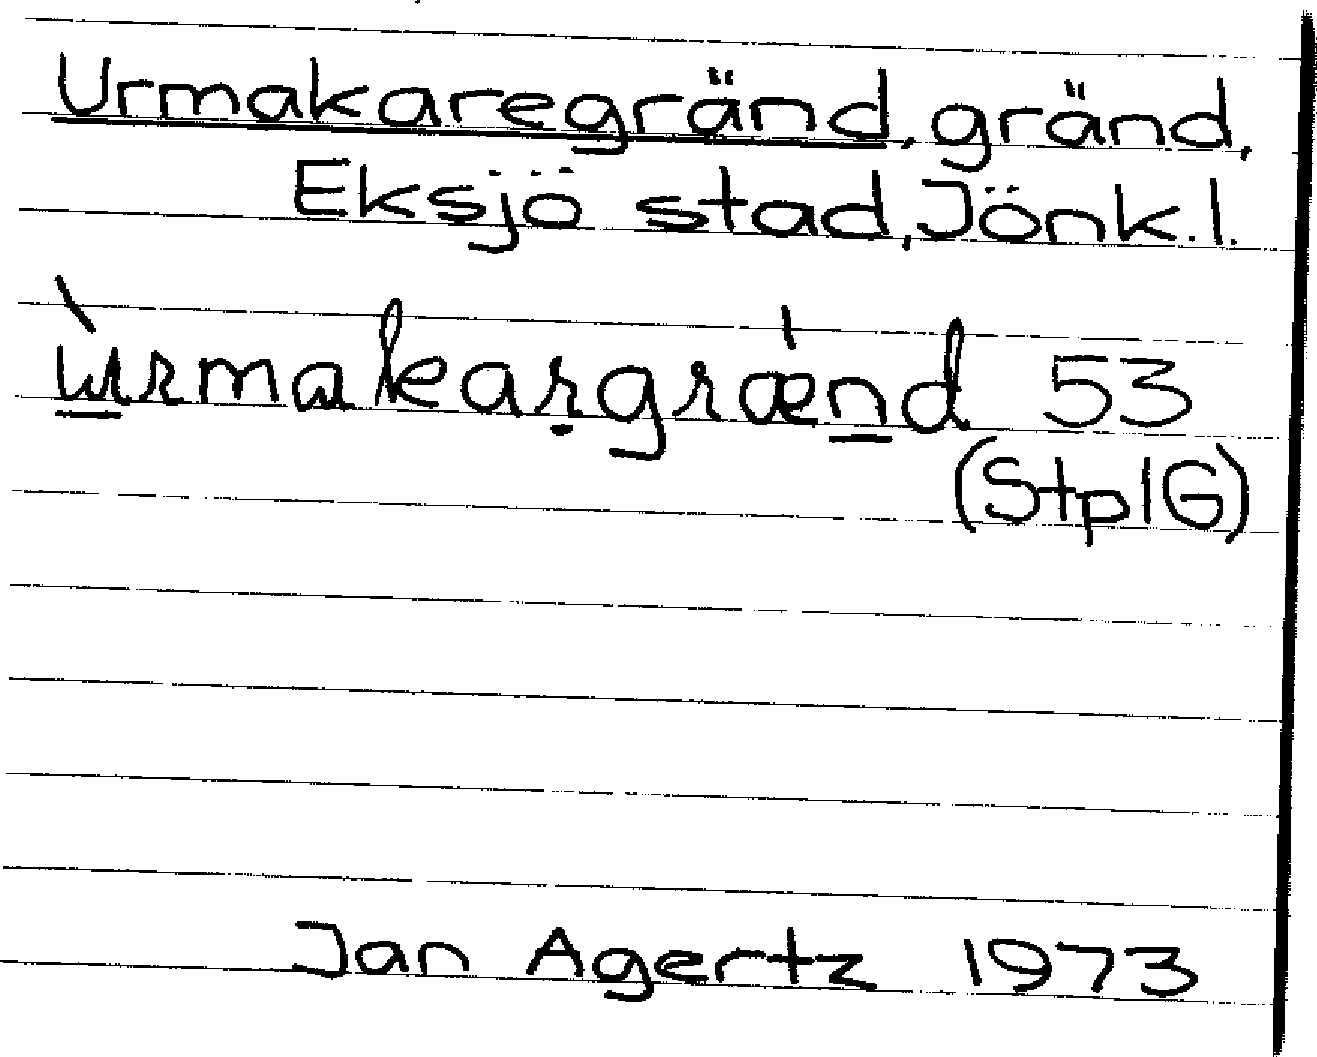 Urmakaregränd, gränd,
Eksjö stad, Jönk. l.
ùrmakargrænd 53
(StplG)
Jan Agertz 1973